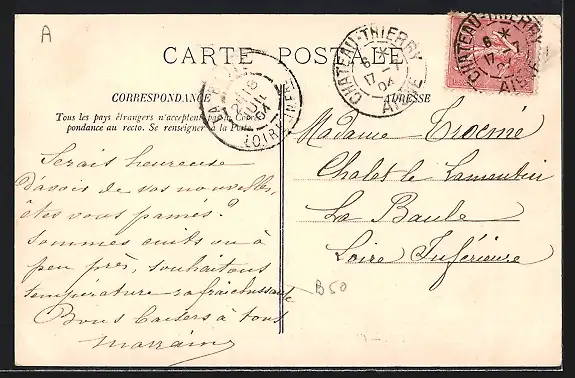 A
CARTE POSTALE
CORRESPONDANCE
Tous les pays étrangers n'acceptent pas la Corres-
pondance au recto. Se renseigner à la Poste.
ADRESSE
CHATEAU-THIERRY
6 *
17 -7
04
AISNE
CHATEAU-THIERRY
6 * 7
17
04
AISNE
18
JUIL
04
LOIRE INFRE
Serais heureuse
d'avoir de vos nouvelles,
êtes vous pamés?
Sommes cuits ou à
peu près, souhaitons
température rafraichissante
Bons baisers à tous
marraine
Madame Trocmé
Chalet le Lamentin
La Baule
Loire Inférieure
B50